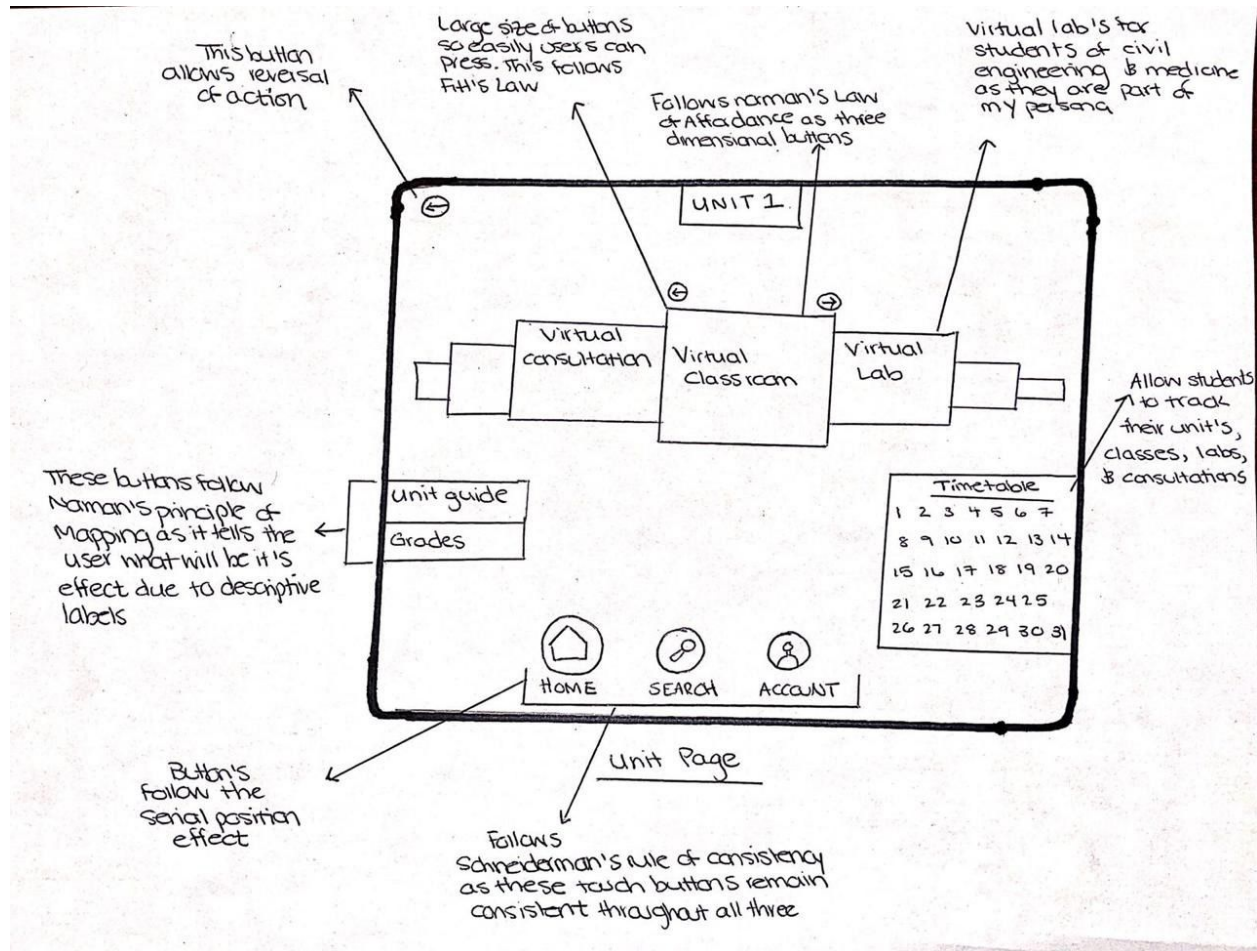 This button
allows reversal
of action
Large size of buttons
so easily users can
press. This follows
Fitt's Law
Follows norman's Law
of Affordance as three
dimensional buttons
Virtual lab's for
students of civil
engineering & medicine
as they are part of
my persona
UNIT 1
Virtual
consultation
Virtual
Classroom
Virtual
Lab
Allow students
to track
their unit's,
classes, labs,
& consultations
These buttons follow
Norman's principle of
Mapping as it tells the
user what will be it's
effect due to descriptive
labels
unit guide
Grades
Timetable
1 2 3 4 5 6 7
8 9 10 11 12 13 14
15 16 17 18 19 20
21 22 23 24 25
26 27 28 29 30 31
HOME SEARCH ACCOUNT
Unit Page
Button's
Follow the
serial position
effect
Follows
Schneiderman's rule of consistency
as these touch buttons remain
consistent throughout all three